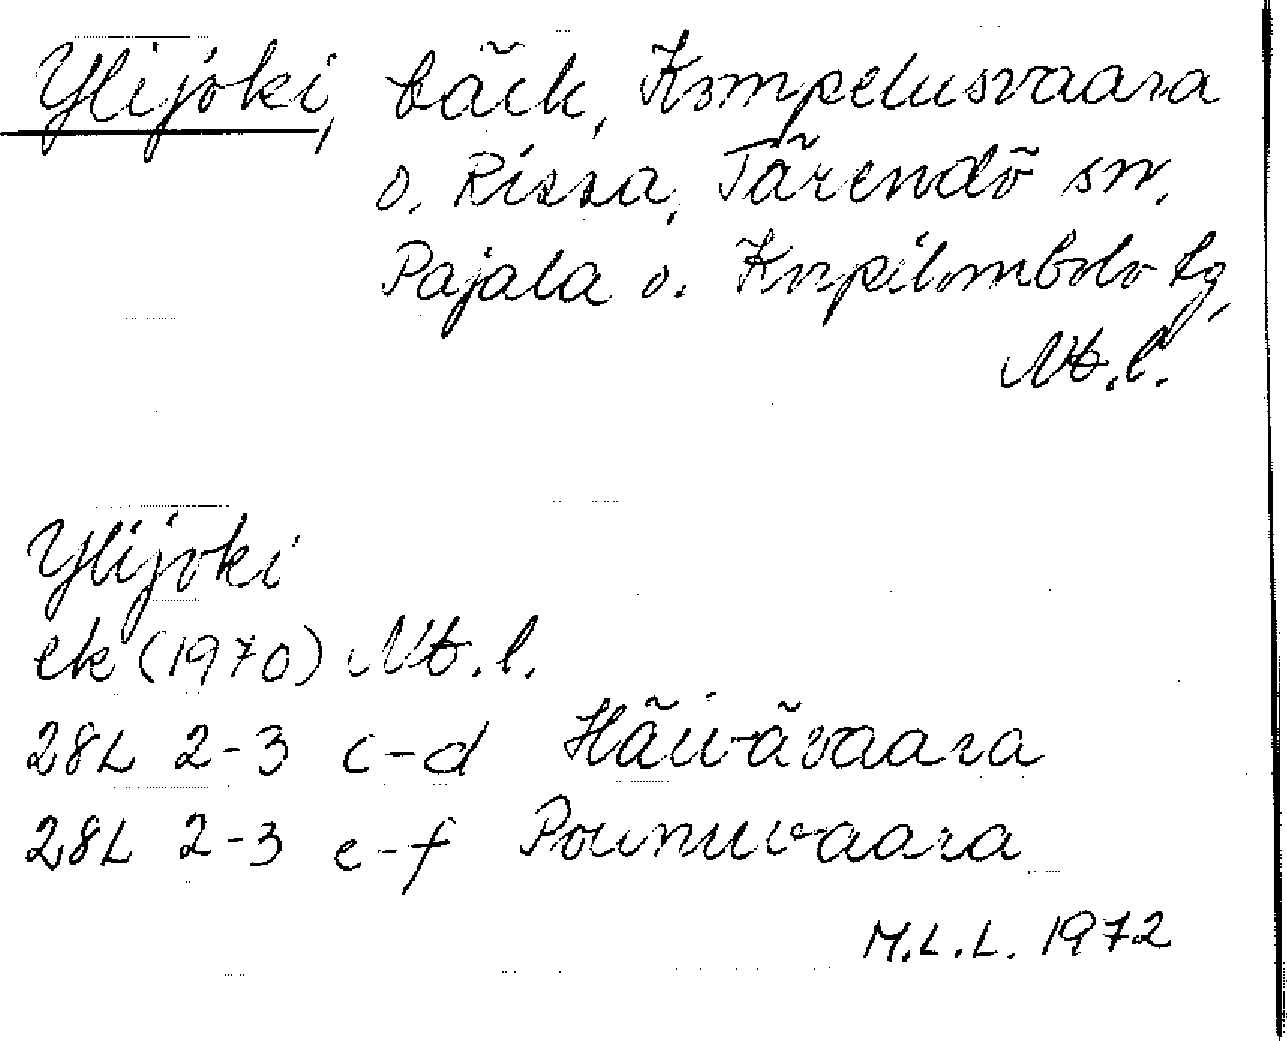 Ylijoki, bäck, Kompelusvaara
o. Rissa, Tärendö sn.
Pajala o. Korpilombolo tg,
Nb.l.
Ylijoki
ek (1970) Nb.l.
28L 2-3 c-d Häivävaara
28L 2-3 e-f Pounuvaara
M.L.L. 1972